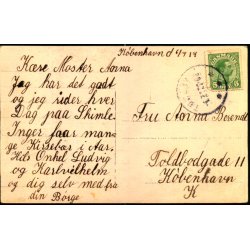 København d 4/7 18
Kære Moster Anna
Jeg har det godt
og jeg rider hver
Dag paa Skimle.
Inger faar man-
ge Kirsebær i Aar.
Hils Onkel Ludvig
og Karlvilhelm
og dig selv med fra
din Børge
Fru Anna
Toldbodgade 11
København
K